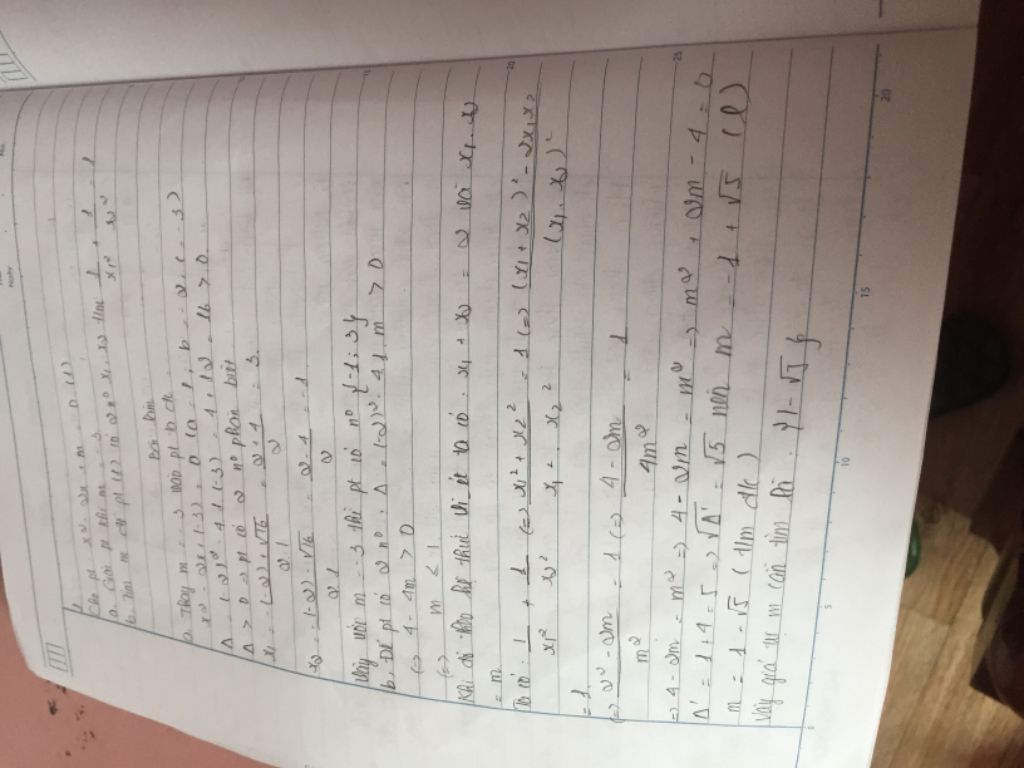 Cho pt x² - 2x + m = 0 (1)
a. Giải pt khi m = -3
b. Tìm m để pt (1) có 2 n⁰ x₁, x₂ t/m 1/x₁² + 1/x₂² = 1
Bài làm
a. Thay m = -3 vào pt
x² - 2x + (-3) = 0 (a = 1; b = -2; c = -3)
Δ = (-2)² - 4.1.(-3) = 4 + 12 = 16 > 0
Δ > 0 => pt có 2 n⁰ phân biệt
x₁ = -(-2) + √16 / 2.1 = 2 + 4 / 2 = 3
x₂ = -(-2) - √16 / 2.1 = 2 - 4 / 2 = -1
Vậy với m = -3 thì pt có n⁰ {-1; 3}
b. Để pt có 2 n⁰: Δ = (-2)² - 4.1.m > 0
(=) 4 - 4m > 0
(=) m < 1
Khi đó theo hệ thức Vi-ét ta có: x₁ + x₂ = 2 và x₁.x₂
= m
Ta có: 1/x₁² + 1/x₂² = 1 (=) x₁² + x₂² / x₁². x₂² = 1 (=) (x₁ + x₂)² - 2x₁x₂ / (x₁.x₂)²
= 1
(=) 2² - 2m / m² = 1 (=) 4 - 2m / 4m² = 1
=> 4 - 2m = m² => 4 - 2m = m² => m² + 2m - 4 = 0
Δ' = 1 + 4 = 5 => √Δ' = √5 nên m = -1 + √5 (l)
m = -1 - √5 (t/m đk)
Vậy giá trị m cần tìm là {-1 - √5}